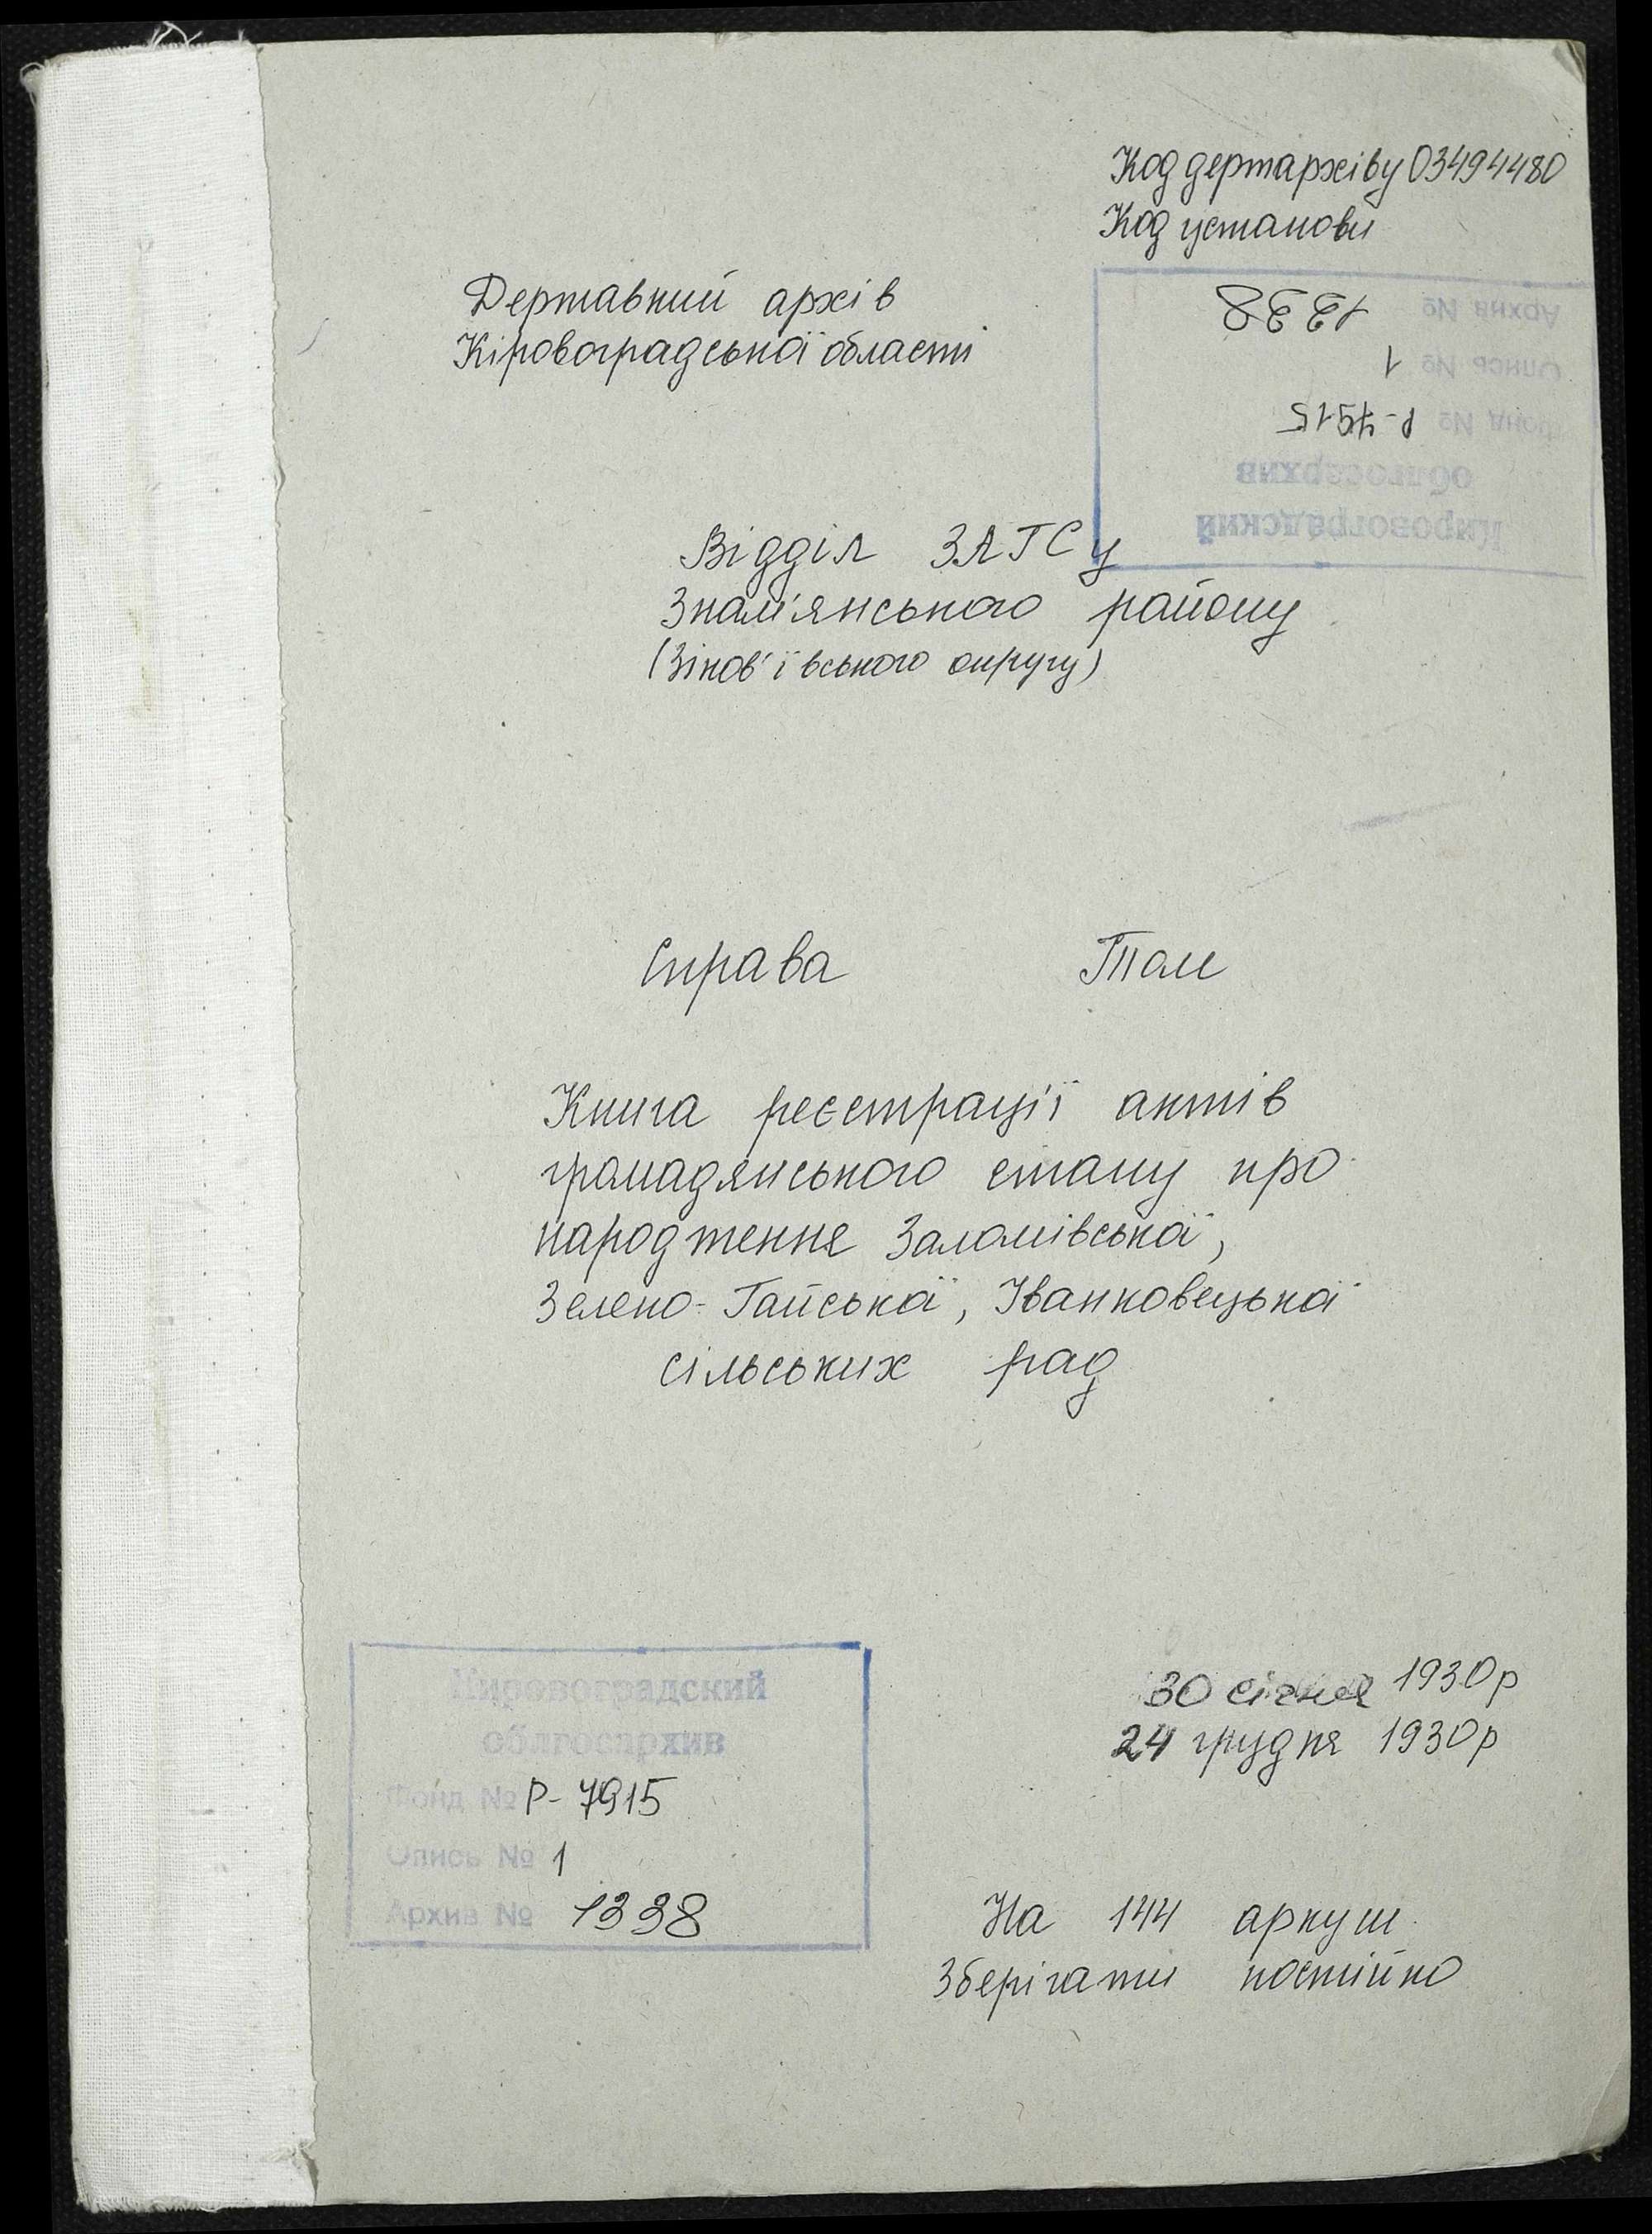 Код держархіву 03494480
Код установи
Державний архів
Кіровоградської області
Кировоградский
облгосархив
Фонд № Р-7915
Опись № 1
Архив № 1338
Відділ ЗАГСу
Знам'янського району
(Зінов'ївського округу)
Справа Том
Книга реєстрації актів
громадянського стану про
народження Заломівської,
Зелено-Гайської, Іванковецької
сільських рад
30 січня 1930р
24 грудня 1930р
Кировоградский
облгосархив
Фонд № Р-7915
Опись № 1
Архив № 1338
На 144 аркуш
Зберігати постійно